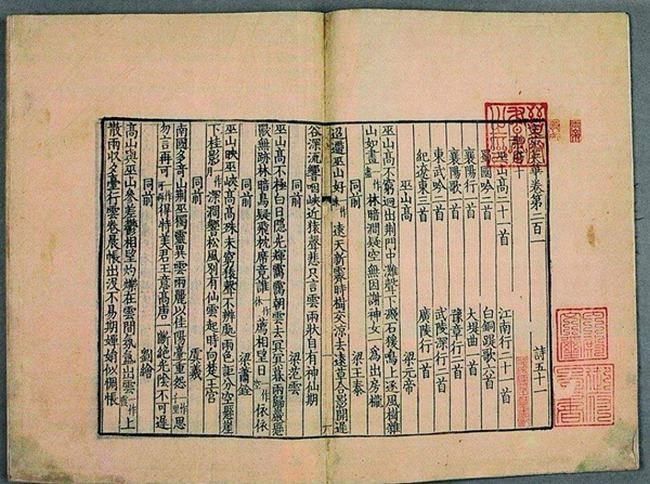 文苑英華卷第二百一 詩五十一
巫山高二十一首 江南行二十一首
蜀國吟二首 白銅蹀歌六首
襄陽行二首 大堤曲一首
襄陽歌二首 豫章行二首
東武吟二首 武陵深行二首
紀遼東三首 廣陵行一首
巫山高 梁元帝
巫山高不窮迥出荆門中灘聲下濺石猿鳴上逐風樹雜
山如畫林暗澗疑空無因謝神女一為出房櫳
梁王泰
迢遞巫山好遠天新霽時樹交涼去遠草合影開遲
谷深流響咽峽近猿聲悲只言雲雨狀自有神仙期
梁范雲
巫山高不極白日隱光輝靄靄朝雲去冥冥暮雨歸巖懸
獸無跡林暗鳥疑飛枕席竟誰薦相望日依依
同前 梁蕭銓
巫山映巫峽高高殊未窮猿聲不辨處雨色詎分空懸崖
下桂影深澗響松風別有仙雲起時向楚王宮
同前 虞羲
南國多奇山荆巫獨靈異雲雨麗以佳陽臺重怨思
勿言再可得特美君王意高唐一斷絕光陰不可遲
同前 劉繪
高山與巫山參差鬱相望灼爍在雲間氛氳出雲上
散雨收夕臺行雲卷晨帳出沒不易期嬋娟似惆悵